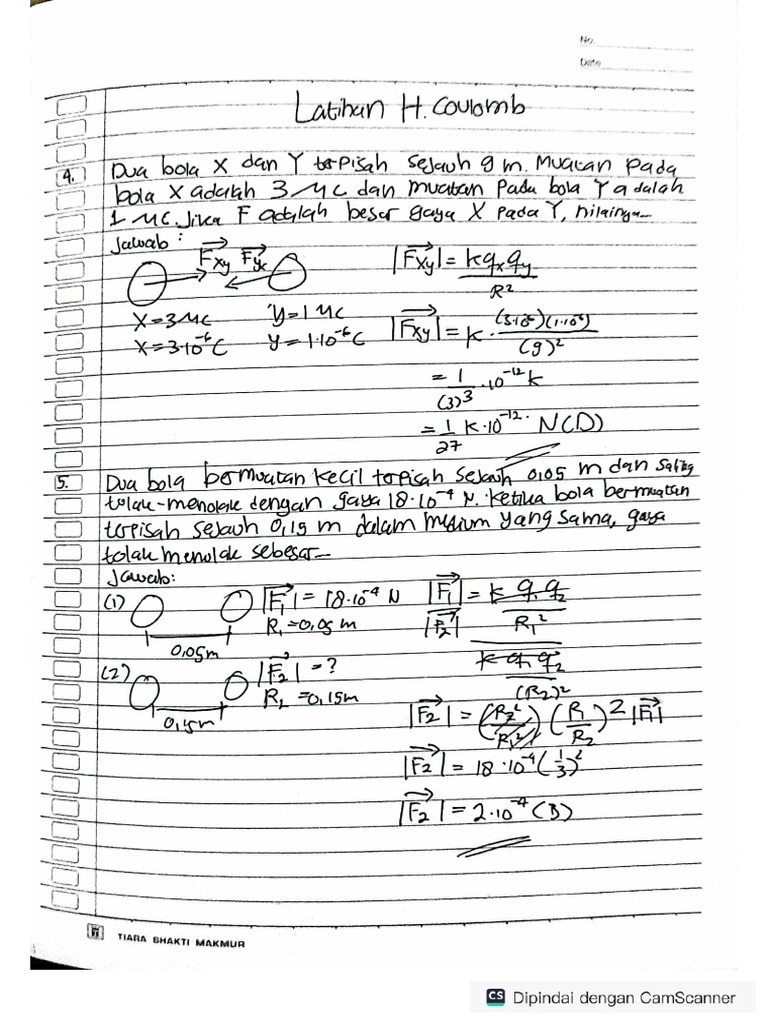 No.
Date
Latihan H. Coulomb
4. Dua bola X dan Y terpisah sejauh 9 m. Muatan pada
bola X adalah 3 μC dan muatan pada bola Y adalah
1 μC. Jika F adalah besar gaya X pada Y, nilainya...
Jawab :
Fxy Fyx
|Fxy| = k qx qy / R²
X = 3 μC y = 1 μC
X = 3·10⁻⁶ C y = 1·10⁻⁶ C
|Fxy| = k · (3·10⁻⁶)(1·10⁻⁶) / (9)²
= 1/(3)³ · 10⁻¹² k
= 1/27 k·10⁻¹² · N (D)
5. Dua bola bermuatan kecil terpisah sejauh 0,05 m dan saling
tolak-menolak dengan gaya 18·10⁻⁴ N. Ketika bola bermuatan
terpisah sejauh 0,15 m dalam medium yang sama, gaya
tolak menolak sebesar...
Jawab:
(1) |F1| = 18·10⁻⁴ N
R1 = 0,05 m
0,05m
|F1| / |F2| = k q1 q2 / R1² / k q1 q2 / (R2)²
(2) |F2| = ?
R2 = 0,15m
0,15m
|F2| = (R1/R2)² |F1|
|F2| = 18·10⁻⁴ (1/3)²
|F2| = 2·10⁻⁴ (B)
TIARA BHAKTI MAKMUR
CS Dipindai dengan CamScanner